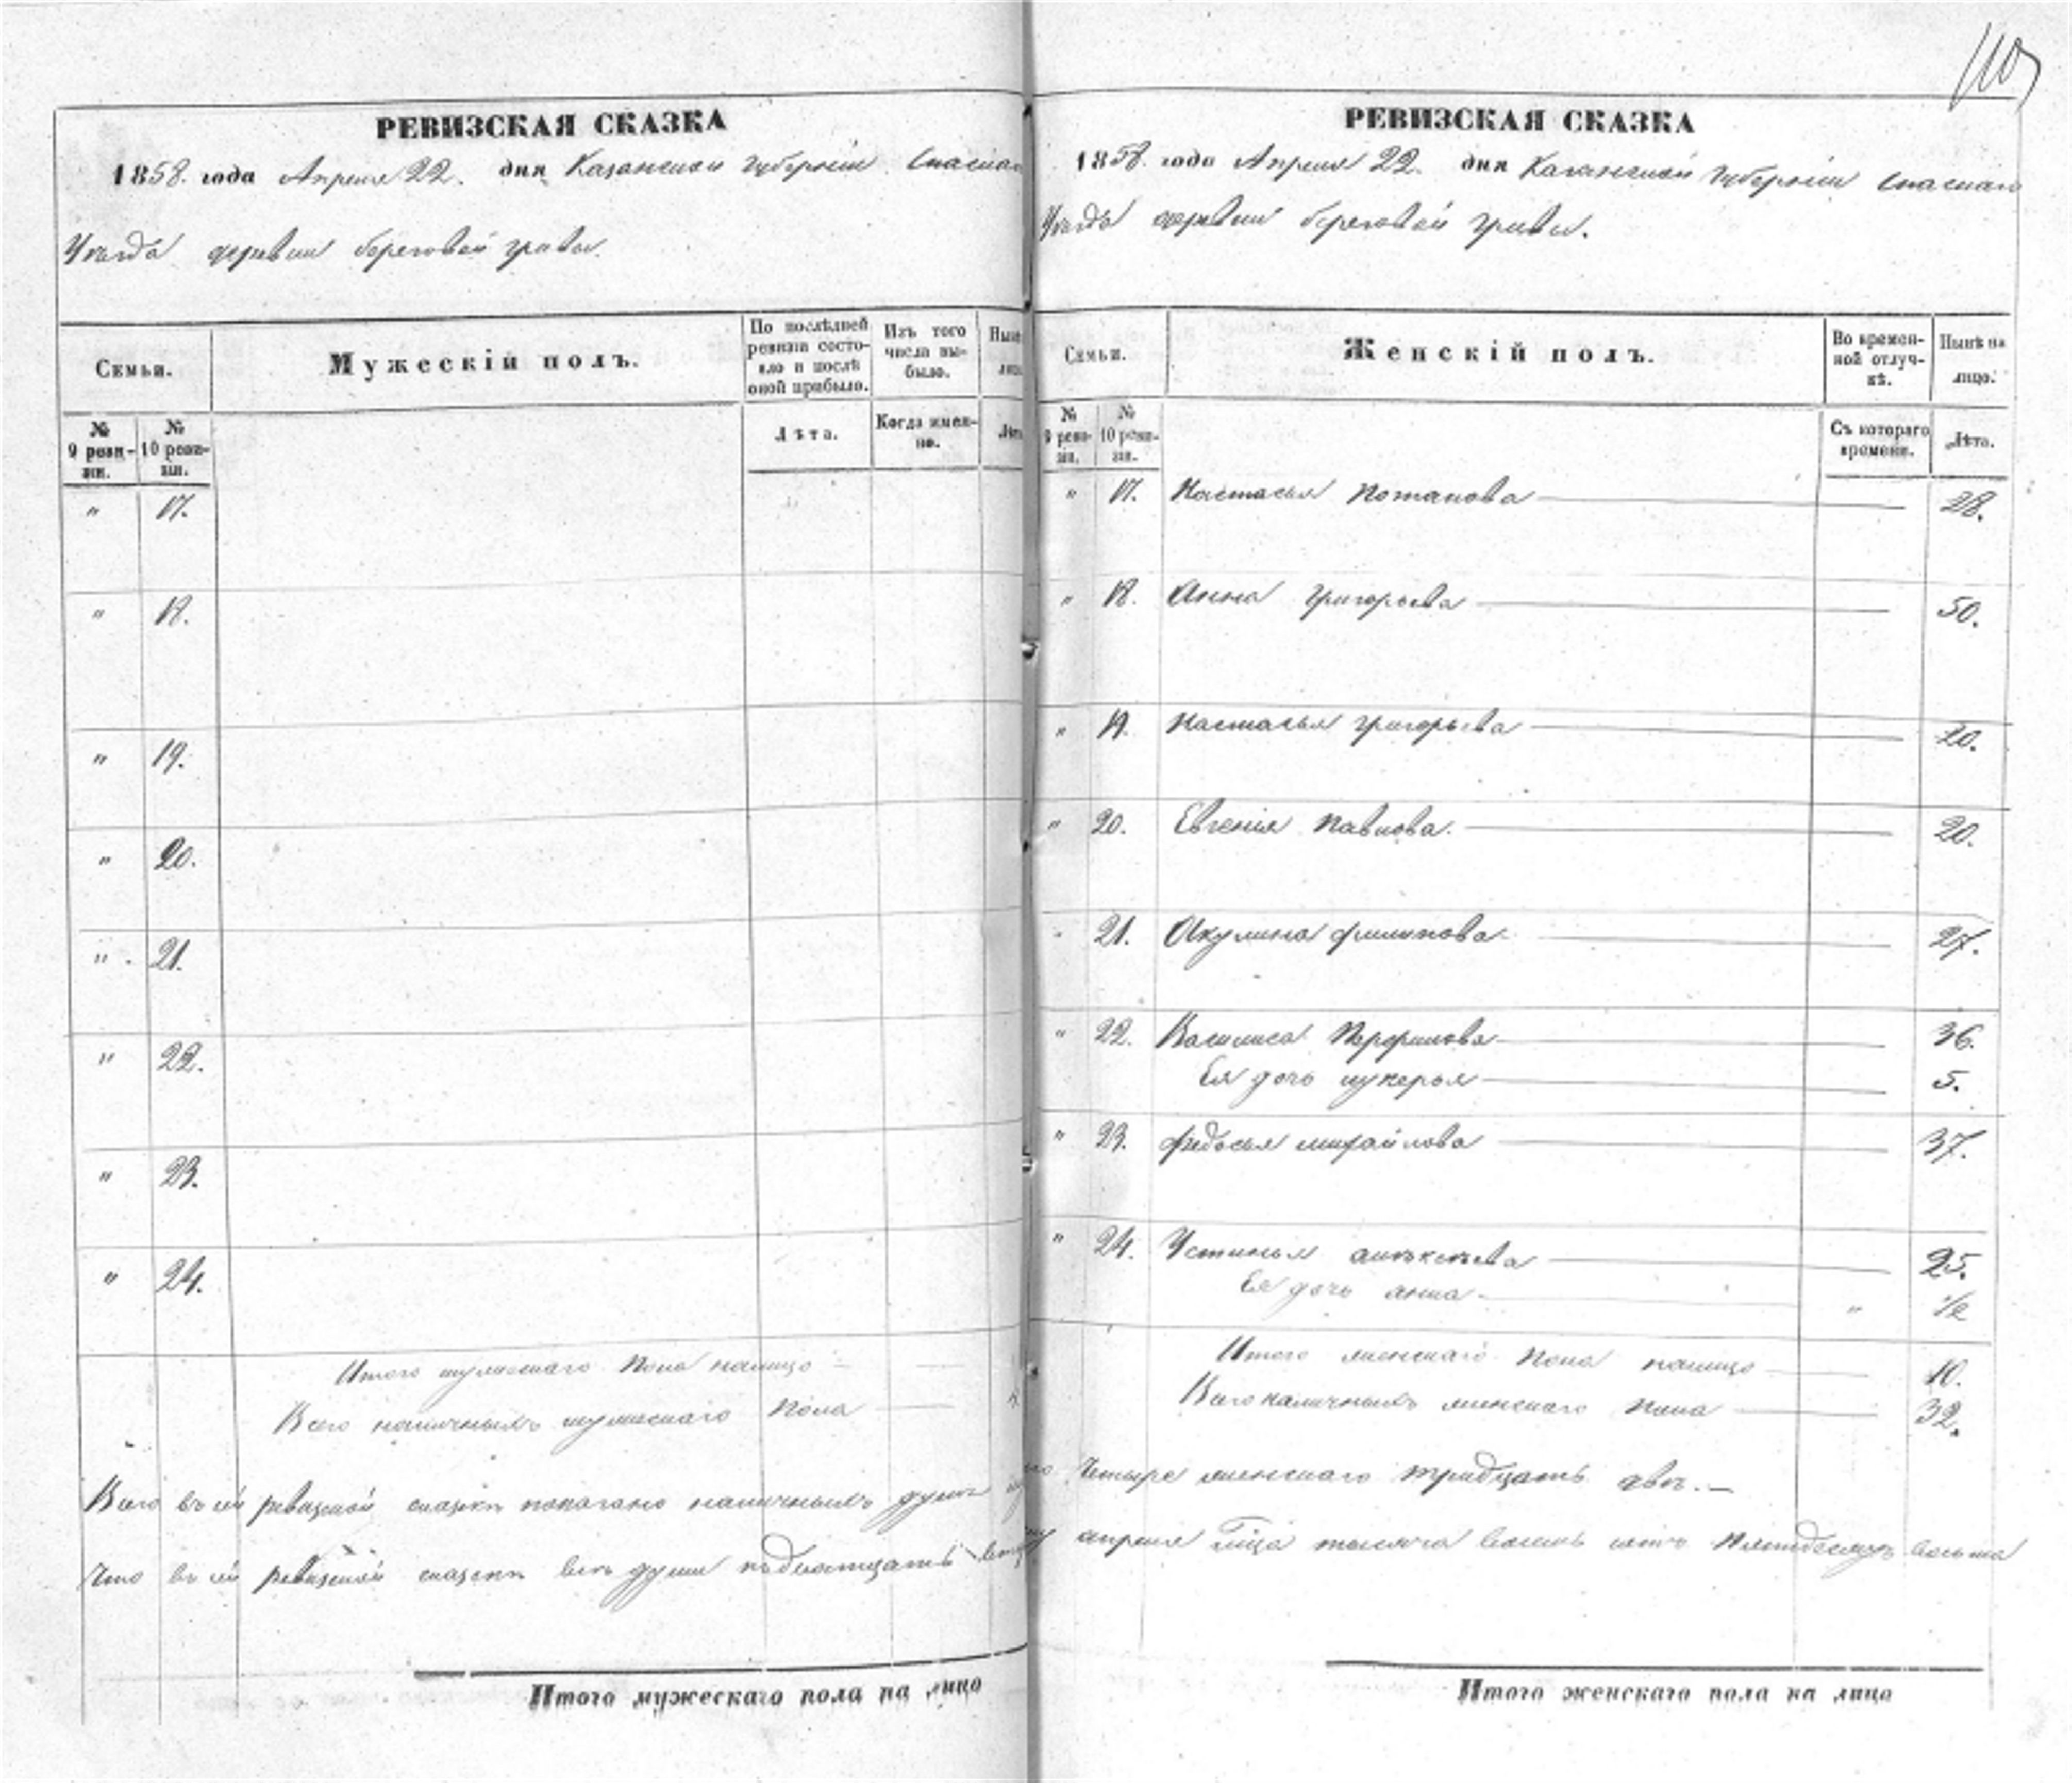 РЕВИЗСКАЯ СКАЗКА
1858. года Апреля 22. дня Казанской Губернiи Спаскаго
Уѣзда деревни береговой гривы.
Семьи.
Мужескій полъ.
По послѣдней ревизіи состояло и послѣ оной прибыло.
Изъ того числа выбыло.
№ 9 ревизіи.
№ 10 ревизіи.
Лѣта.
Когда именно.
" 17.
" 18.
" 19.
" 20.
" 21.
" 22.
" 23.
" 24.
Итого мужескаго пола налицо
Всего наличныхъ мужескаго пола
Всего въ сей ревизской сказкѣ показано наличныхъ душъ
Что въ сей ревизской сказкѣ всѣ души
Итого мужескаго пола на лицо
110
РЕВИЗСКАЯ СКАЗКА
1858. года Апреля 22. дня Казанской Губернiи Спаскаго
Уѣзда деревни береговой гривы.
Семьи.
Женскій полъ.
Во временной отлучкѣ.
Нынѣ на лицо.
№ 9 ревизіи.
№ 10 ревизіи.
Съ котораго времени.
Лѣта.
" 17. Настасья Потапова 28.
" 18. Анна Григорьева 50.
" 19. Настасья Григорьева 20.
" 20. Евгенія Павлова. 20.
" 21. Акулина Филипова 27.
" 22. Василиса Перфилова 36.
Ея дочь лукерья 5.
" 23. Федосья михайлова 37.
" 24. Устинья алѣксѣева 25.
Ея дочь анна " 1/2
Итого женскаго пола налицо 10.
Всего наличныхъ женскаго пола 32.
четыре женскаго тридцать двѣ.
апреля тысяча восемь сотъ пятьдесятъ
Итого женскаго пола на лицо